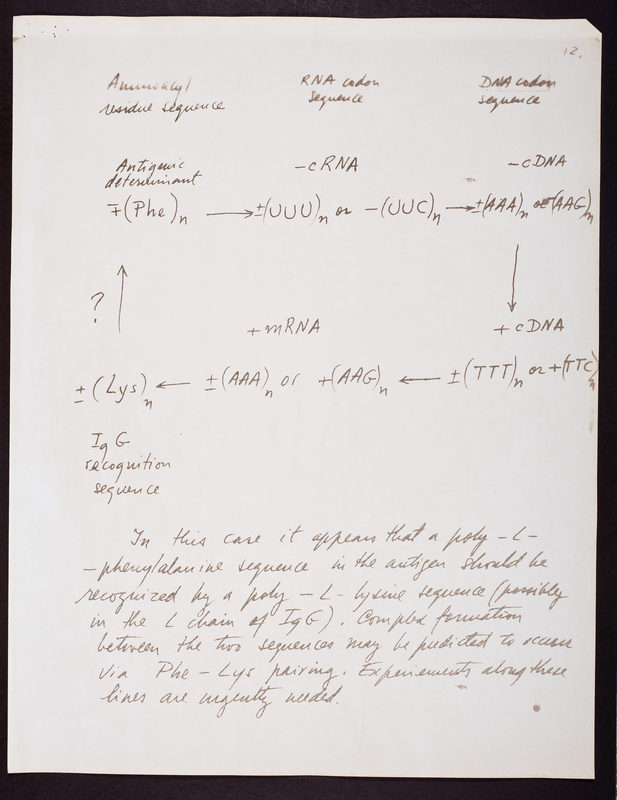 12.
Aminoacyl RNA codon DNA codon
residue sequence sequence sequence
Antigenic -cRNA -cDNA
determinant
∓(Phe)n → ±(UUU)n or -(UUC)n → ±(AAA)n or (AAG)n
? ↑ ↓
+mRNA +cDNA
±(Lys)n ← ±(AAA)n or +(AAG)n ← ±(TTT)n or +(TTC)n
IgG
recognition
sequence
In this case it appears that a poly-L-
-phenylalanine sequence in the antigen should be
recognized by a poly-L-lysine sequence (possibly
in the L chain of IgG). Complex formation
between the two sequences may be predicted to occur
via Phe-Lys pairing. Experiements along these
lines are urgently needed.